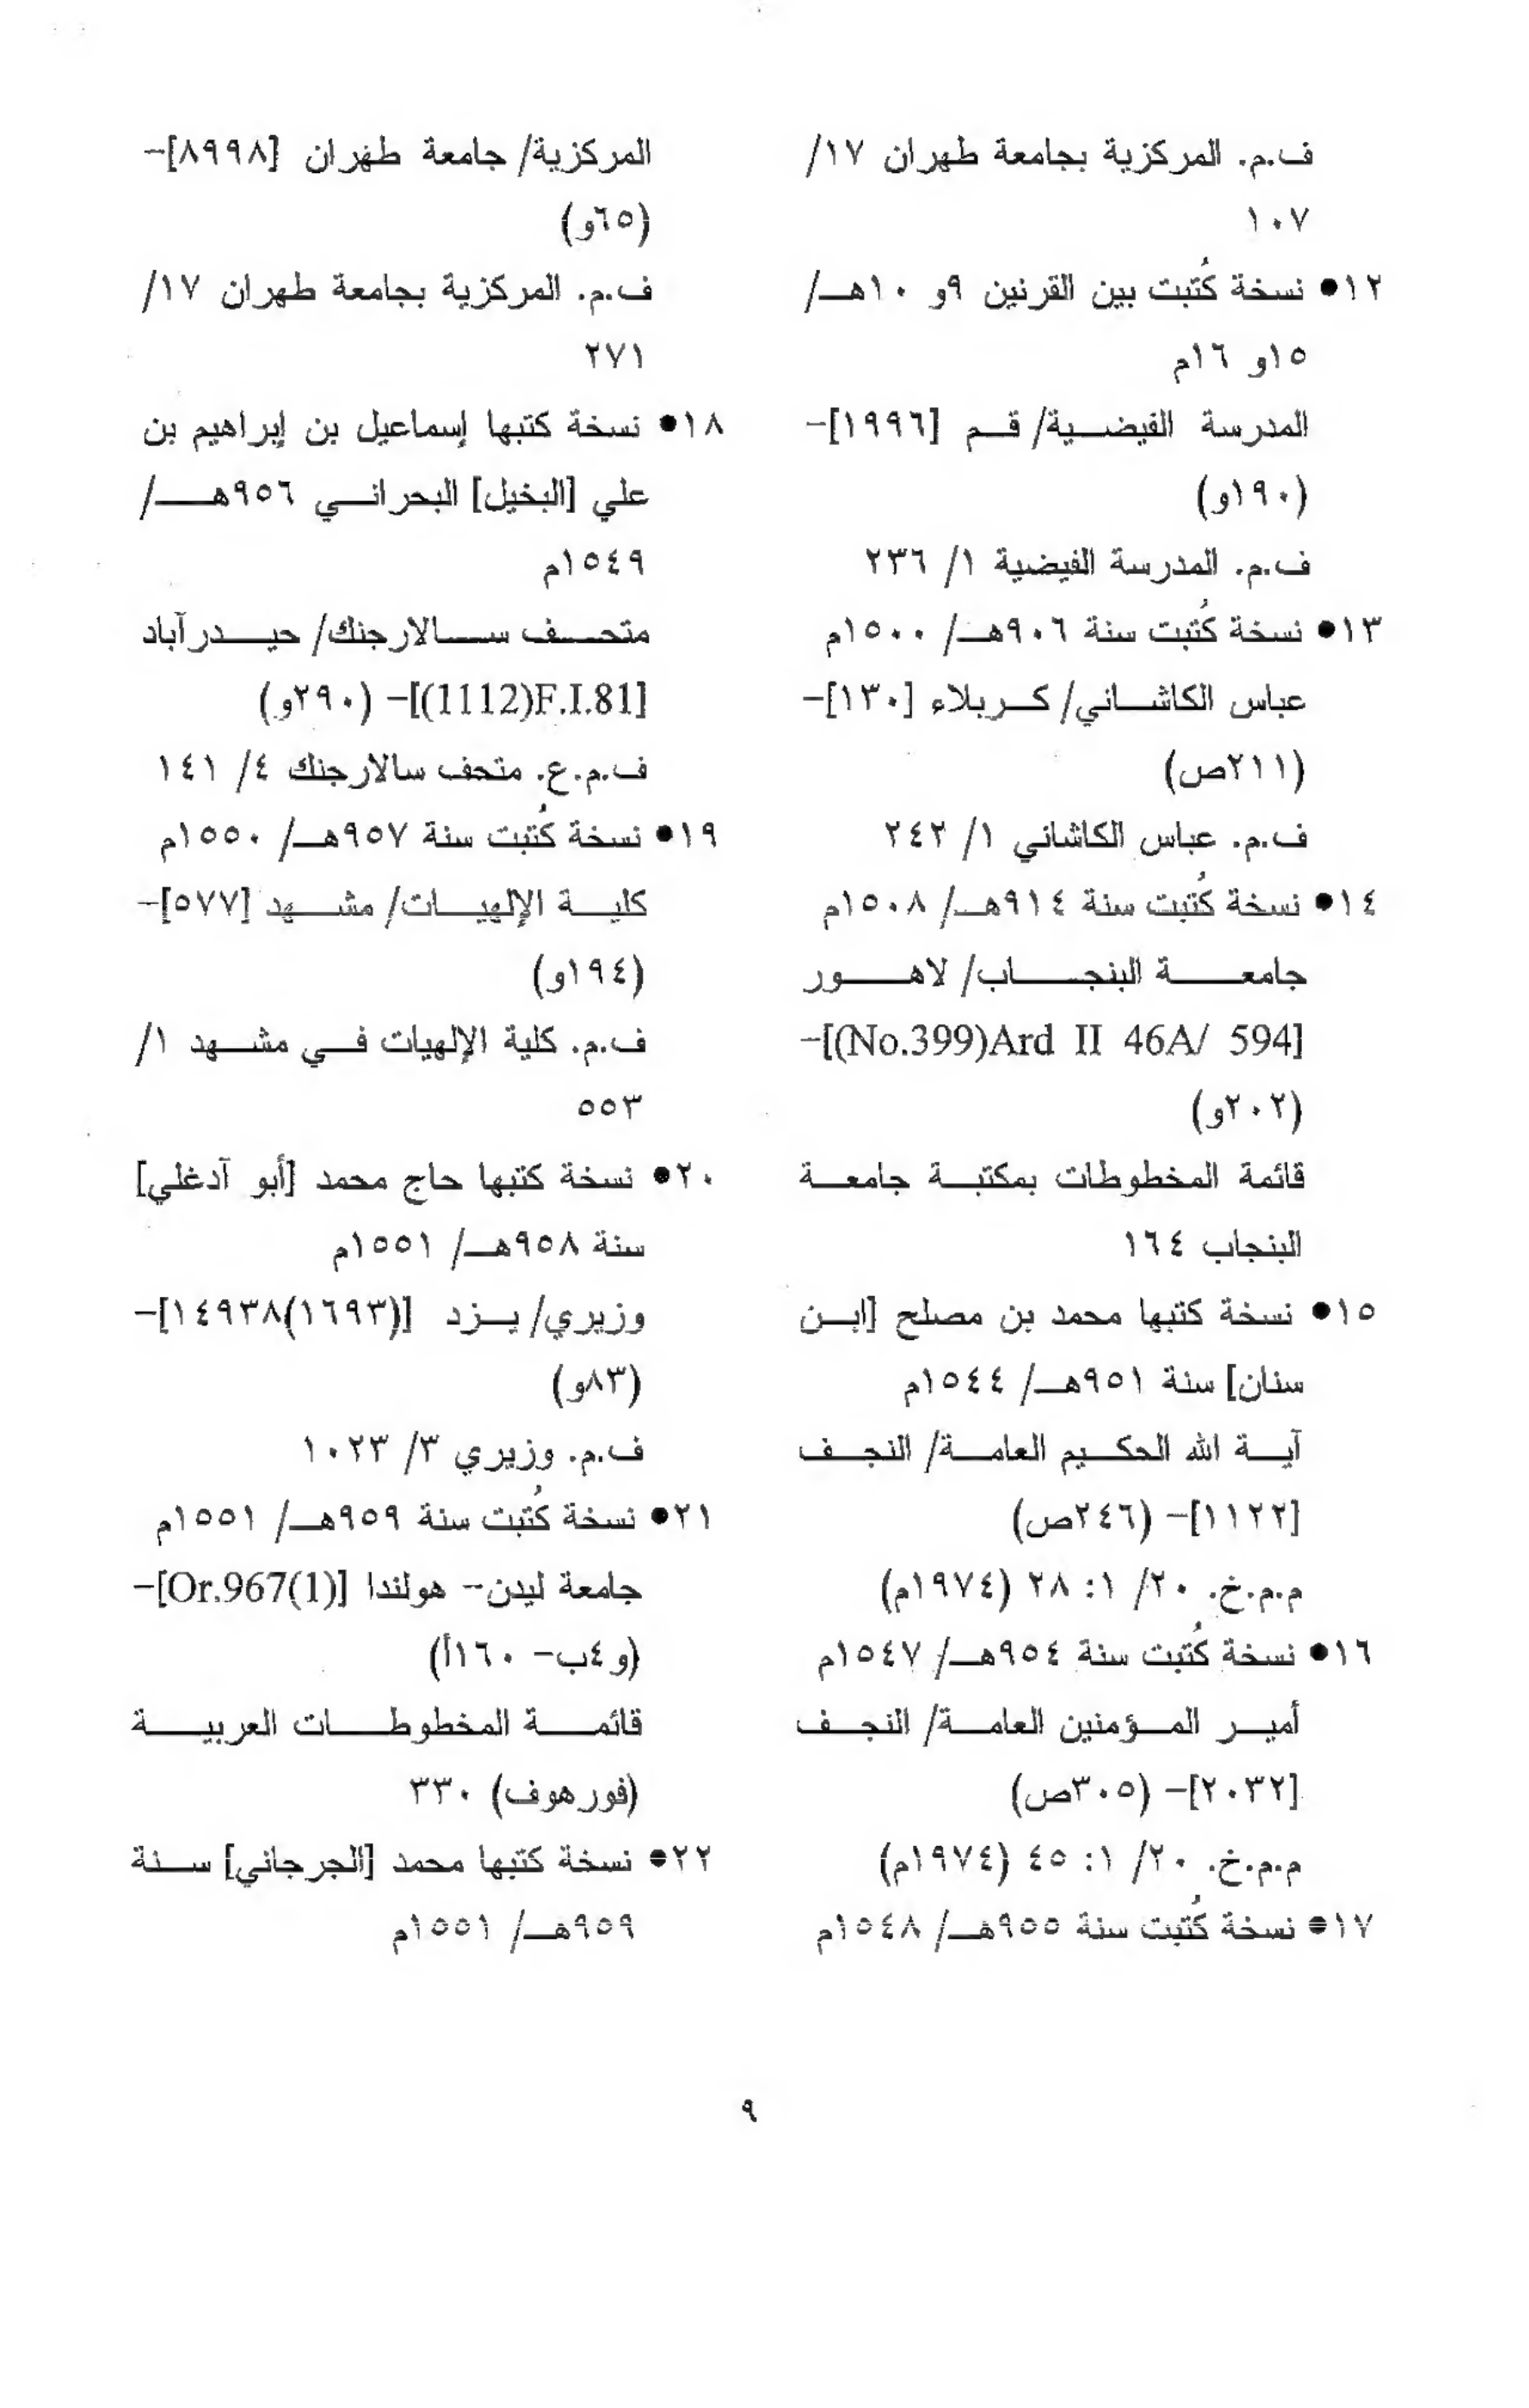 ف.م. المركزية بجامعة طهران ١٧/
١٠٧
١٢● نسخة كُتبت بين القرنين ٩و ١٠هـ/
١٥و ١٦م
المدرسة الفيضية/ قم [١٩٩٦]-
(١٩٠و)
ف.م. المدرسة الفيضية ١/ ٢٣٦
١٣● نسخة كُتبت سنة ٩٠٦هـ/ ١٥٠٠م
عباس الكاشاني/ كربلاء [١٣٠]-
(٢١١ص)
ف.م. عباس الكاشاني ١/ ٢٤٢
١٤● نسخة كُتبت سنة ٩١٤هـ/ ١٥٠٨م
جامعة البنجاب/ لاهور
[(No.399)Ard II 46A/ 594]-
(٢٠٢و)
قائمة المخطوطات بمكتبة جامعة
البنجاب ١٦٤
١٥● نسخة كتبها محمد بن مصلح [ابن
سنان] سنة ٩٥١هـ/ ١٥٤٤م
آية الله الحكيم العامة/ النجف
[١١٢٢]- (٢٤٦ص)
م.م.خ. ٢٠/ ١: ٢٨ (١٩٧٤م)
١٦● نسخة كُتبت سنة ٩٥٤هـ/ ١٥٤٧م
أمير المؤمنين العامة/ النجف
[٢٠٣٢]- (٣٠٥ص)
م.م.خ. ٢٠/ ١: ٤٥ (١٩٧٤م)
١٧● نسخة كُتبت سنة ٩٥٥هـ/ ١٥٤٨م
المركزية/ جامعة طهران [٨٩٩٨]-
(٦٥و)
ف.م. المركزية بجامعة طهران ١٧/
٢٧١
١٨● نسخة كتبها إسماعيل بن إبراهيم بن
علي [البخيل] البحراني ٩٥٦هـ/
١٥٤٩م
متحف سالارجنك/ حيدرآباد
[(1112)F.I.81]- (٢٩٠و)
ف.م.ع. متحف سالارجنك ٤/ ١٤١
١٩● نسخة كُتبت سنة ٩٥٧هـ/ ١٥٥٠م
كلية الإلهيات/ مشهد [٥٧٧]-
(١٩٤و)
ف.م. كلية الإلهيات في مشهد ١/
٥٥٣
٢٠● نسخة كتبها حاج محمد [أبو آدغلي]
سنة ٩٥٨هـ/ ١٥٥١م
وزيري/ يزد [(١٦٩٣)١٤٩٣٨]-
(٨٣و)
ف.م. وزيري ٣/ ١٠٢٣
٢١● نسخة كُتبت سنة ٩٥٩هـ/ ١٥٥١م
جامعة ليدن- هولندا [Or.967(1)]-
(و٤ب- ١٦٠أ)
قائمة المخطوطات العربية
(فورهوف) ٣٣٠
٢٢● نسخة كتبها محمد [الجرجاني] سنة
٩٥٩هـ/ ١٥٥١م
٩